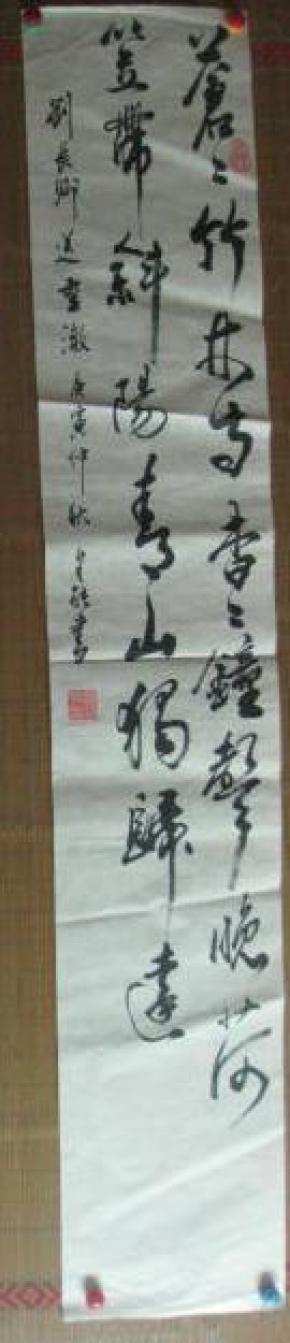 蒼〻竹林寺杳〻鐘聲晚荷
笠帶斜陽青山獨歸遠
劉長卿送靈澈庚寅仲秋書